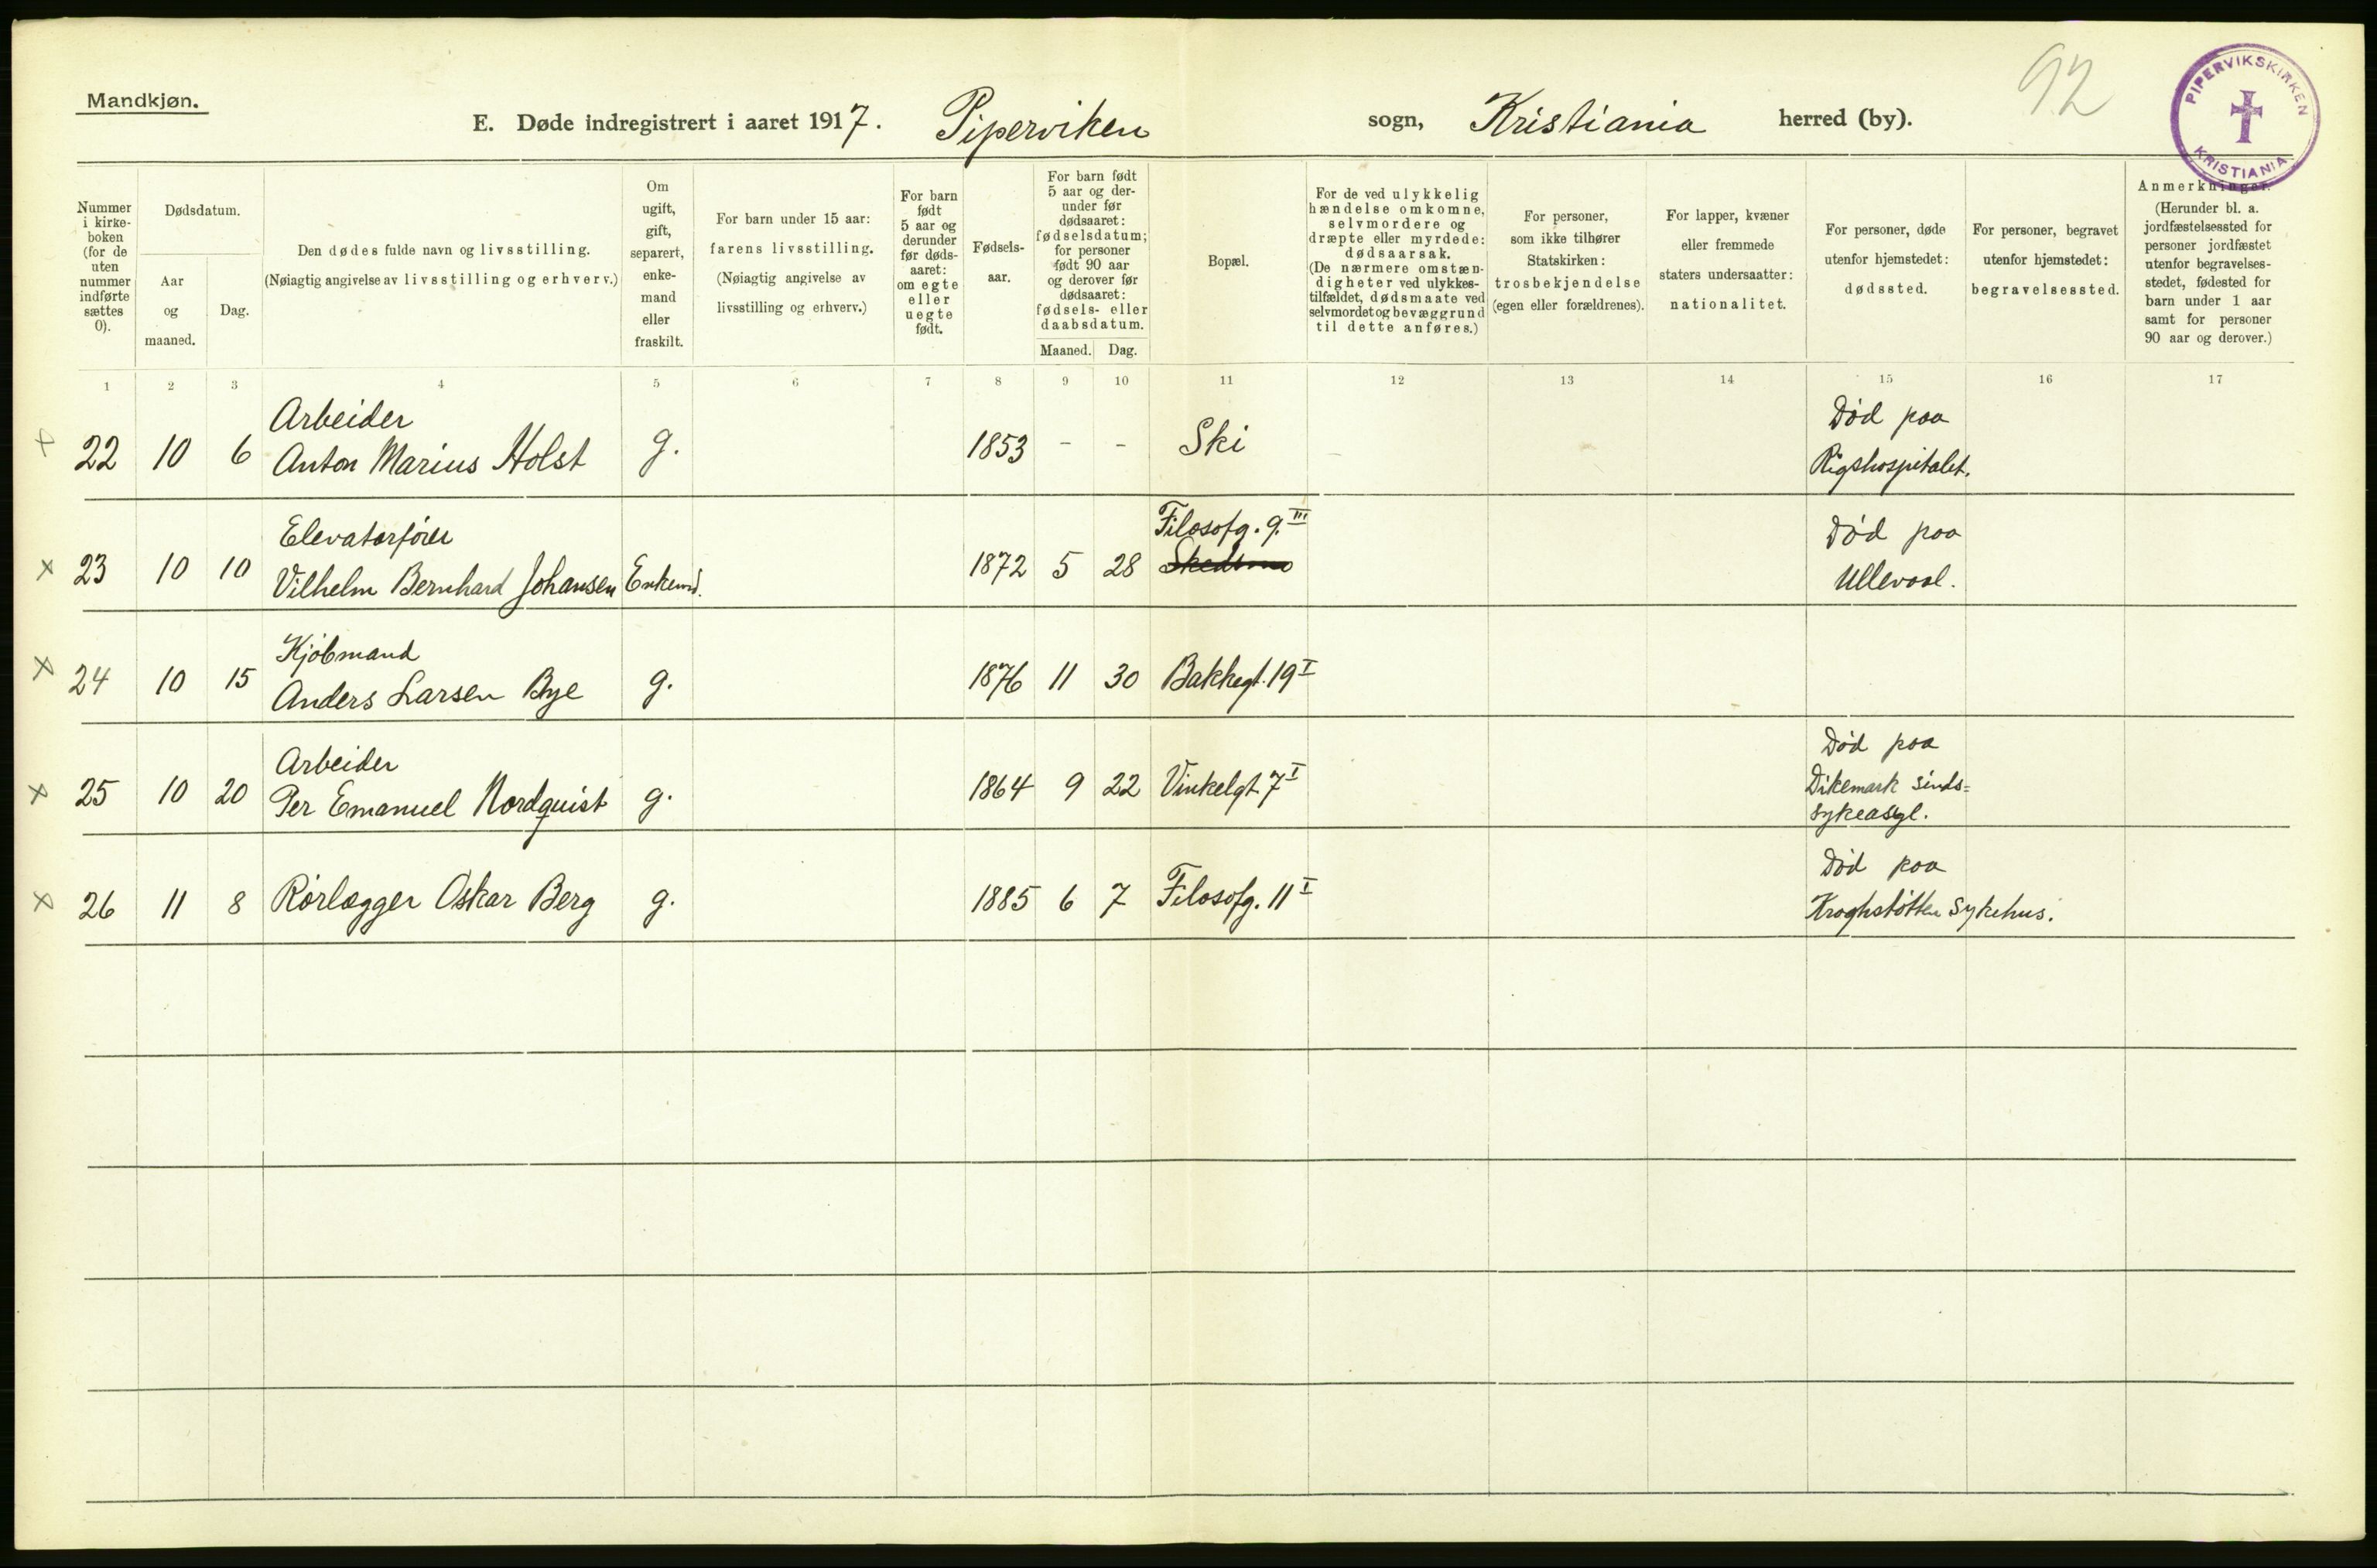 Mandkjøn.
E. Døde indregistrert i aaret 1917. Piperviken sogn, Kristiania herred (by).
92
PIPERVIKSKIRKEN
KRISTIANIA
Nummer
i kirke-
boken
(for de
uten
nummer
indførte
sættes
0).
Dødsdatum.
Aar
og
maaned.
Dag.
Den dødes fulde navn og livsstilling.
(Nøiagtig angivelse av livsstilling og erhverv.)
Om
ugift,
gift,
separert,
enke-
mand
eller
fraskilt.
For barn under 15 aar:
farens livsstilling.
(Nøiagtig angivelse av
livsstilling og erhverv.)
For barn
født
5 aar og
derunder
før døds-
aaret:
om egte
eller
uegte
født.
Fødsels-
aar.
For barn født
5 aar og der-
under før
dødsaaret:
fødselsdatum;
for personer
født 90 aar
og derover før
dødsaaret:
fødsels- eller
daabsdatum.
Maaned. Dag.
Bopæl.
For de ved ulykkelig
hændelse omkomne,
selvmordere og
dræpte eller myrdede:
dødsaarsak.
(De nærmere omstæn-
digheter ved ulykkes-
tilfældet, dødsmaate ved
selvmordet og bevæggrund
til dette anføres.)
For personer,
som ikke tilhører
Statskirken:
trosbekjendelse
(egen eller forældrenes).
For lapper, kvæner
eller fremmede
staters undersaatter:
nationalitet.
For personer, døde
utenfor hjemstedet:
dødssted.
For personer, begravet
utenfor hjemstedet:
begravelsessted.
Anmerkninger.
(Herunder bl. a.
jordfæstelsessted for
personer jordfæstet
utenfor begravelses-
stedet, fødested for
barn under 1 aar
samt for personer
90 aar og derover.)
1 2 3 4 5 6 7 8 9 10 11 12 13 14 15 16 17
Arbeider Død paa
× 22 10 6 Anton Marius Holst g. 1853 - - Ski Rigshospitalet.
Elevatorfører Filosofg. 9. III Død paa
× 23 10 10 Vilhelm Bernhard Johansen Enkemd. 1872 5 28 Skedsmo Ullevaal.
Kjøbmand
× 24 10 15 Anders Larsen Bye g. 1876 11 30 Bakkegt. 19 I
Arbeider Død paa
× 25 10 20 Per Emanuel Nordquist g. 1864 9 22 Vinkelgt. 7 I Dikemark sinds=
sykeasyl.
Død paa
× 26 11 8 Rørlægger Oskar Berg g. 1885 6 7 Filosofg. 11 I Kroghstøtten sykehus.